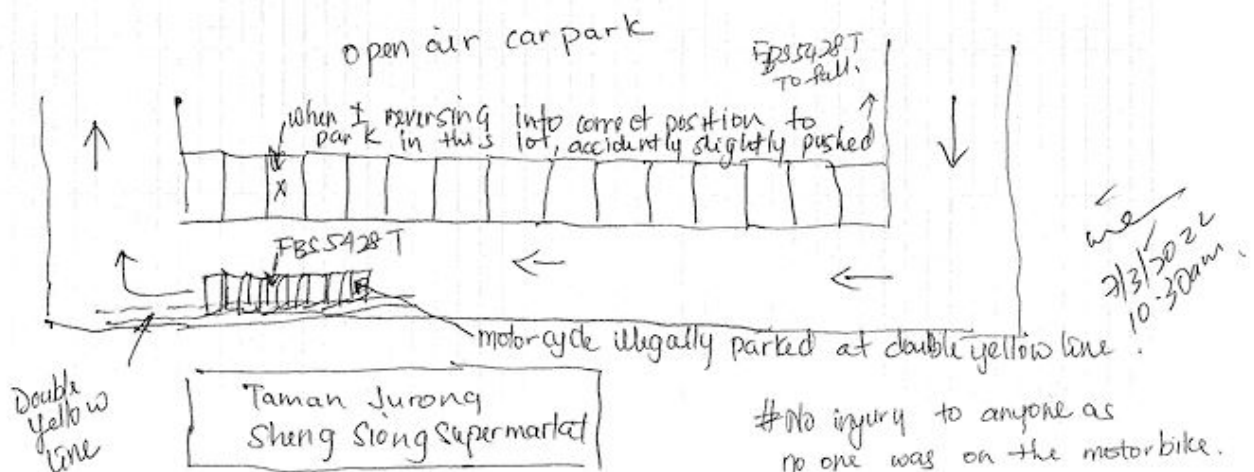 open air car park
FBS5428T
To fall.
when I reversing into correct position to
park in this lot, accidently slightly pushed
x
FBS5428T
7/3/2022
10.30am.
motorcycle illegally parked at double yellow line.
Double
yellow
line
Taman Jurong
Sheng Siong Supermarket
#No injury to anyone as
no one was on the motorbike.